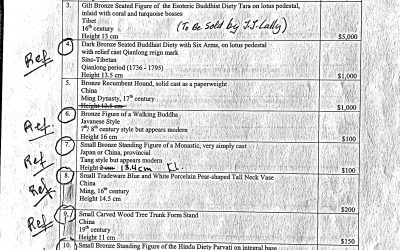 3. Gilt Bronze Seated Figure of the Esoteric Buddhist Diety Tara on lotus pedestal,
inlaid with coral and turquoise bosses
Tibet (To be sold by J.J. Lally)
16th century
Height 13 cm $5,000
Ref 4. Dark Bronze Seated Buddhist Diety with Six Arms, on lotus pedestal
with relief cast Qianlong reign mark
Sino-Tibetan
Qianlong period (1736 - 1795)
Height 13.5 cm $1,000
5. Bronze Recumbent Hound, solid cast as a paperweight
China
Ming Dynasty, 17th century
Height 13.5 cm $1,000
Ref 6. Bronze Figure of a Walking Buddha
Javanese Style
7th/ 8th century style but appears modern
Height 16 cm $100
Ref 7. Small Bronze Standing Figure of a Monastic, very simply cast
Japan or China, provincial
Tang style but appears modern
Height 13.4 cm $100
Ref 8. Small Tradeware Blue and White Porcelain Pear-shaped Tall Neck Vase
China
Ming, 16th century
Height 14.5 cm
$200
Ref 9. Small Carved Wood Tree Trunk Form Stand
China
19th century
Height 11 cm $150
10. Small Bronze Standing Figure of the Hindu Diety Parvati on integral base